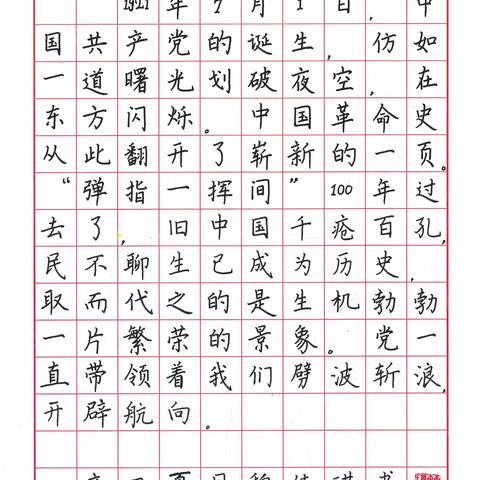 1921年7月1日,中
国共产党的诞生,仿如
一道曙光划破夜空,在
东方闪烁。中国革命史
从此翻开了崭新的一页。
“弹指一挥间”100年过
去了,旧中国千疮百孔,
民不聊生已成为历史,
取而代之的是生机勃勃
一片繁荣的景象。党一
直带领着我们劈波斩浪,
开辟航向。